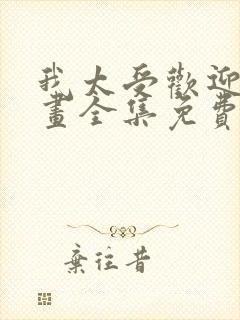 我太受歡迎
畫全集免費
棄往昔